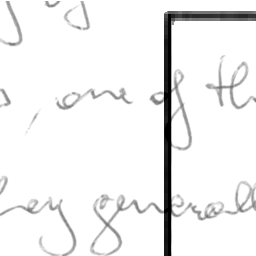 , one of th
hey generall